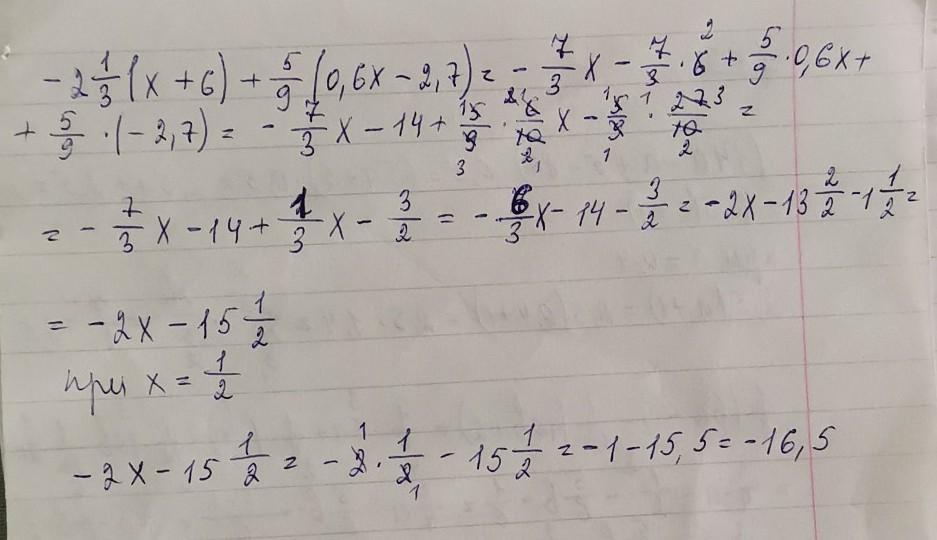 -2 1/3 (x + 6) + 5/9 (0,6x - 2,7) = - 7/3 x - 7/3 · 6 + 5/9 · 0,6x +
+ 5/9 · (- 2,7) = - 7/3 x - 14 + 5/9 · 6/10 x - 5/9 · 27/10 =
= - 7/3 x - 14 + 1/3 x - 3/2 = - 6/3 x - 14 - 3/2 = -2x - 13 2/2 - 1 1/2 =
= -2x - 15 1/2
при x = 1/2
-2x - 15 1/2 = -2 · 1/2 - 15 1/2 = -1 - 15,5 = -16,5